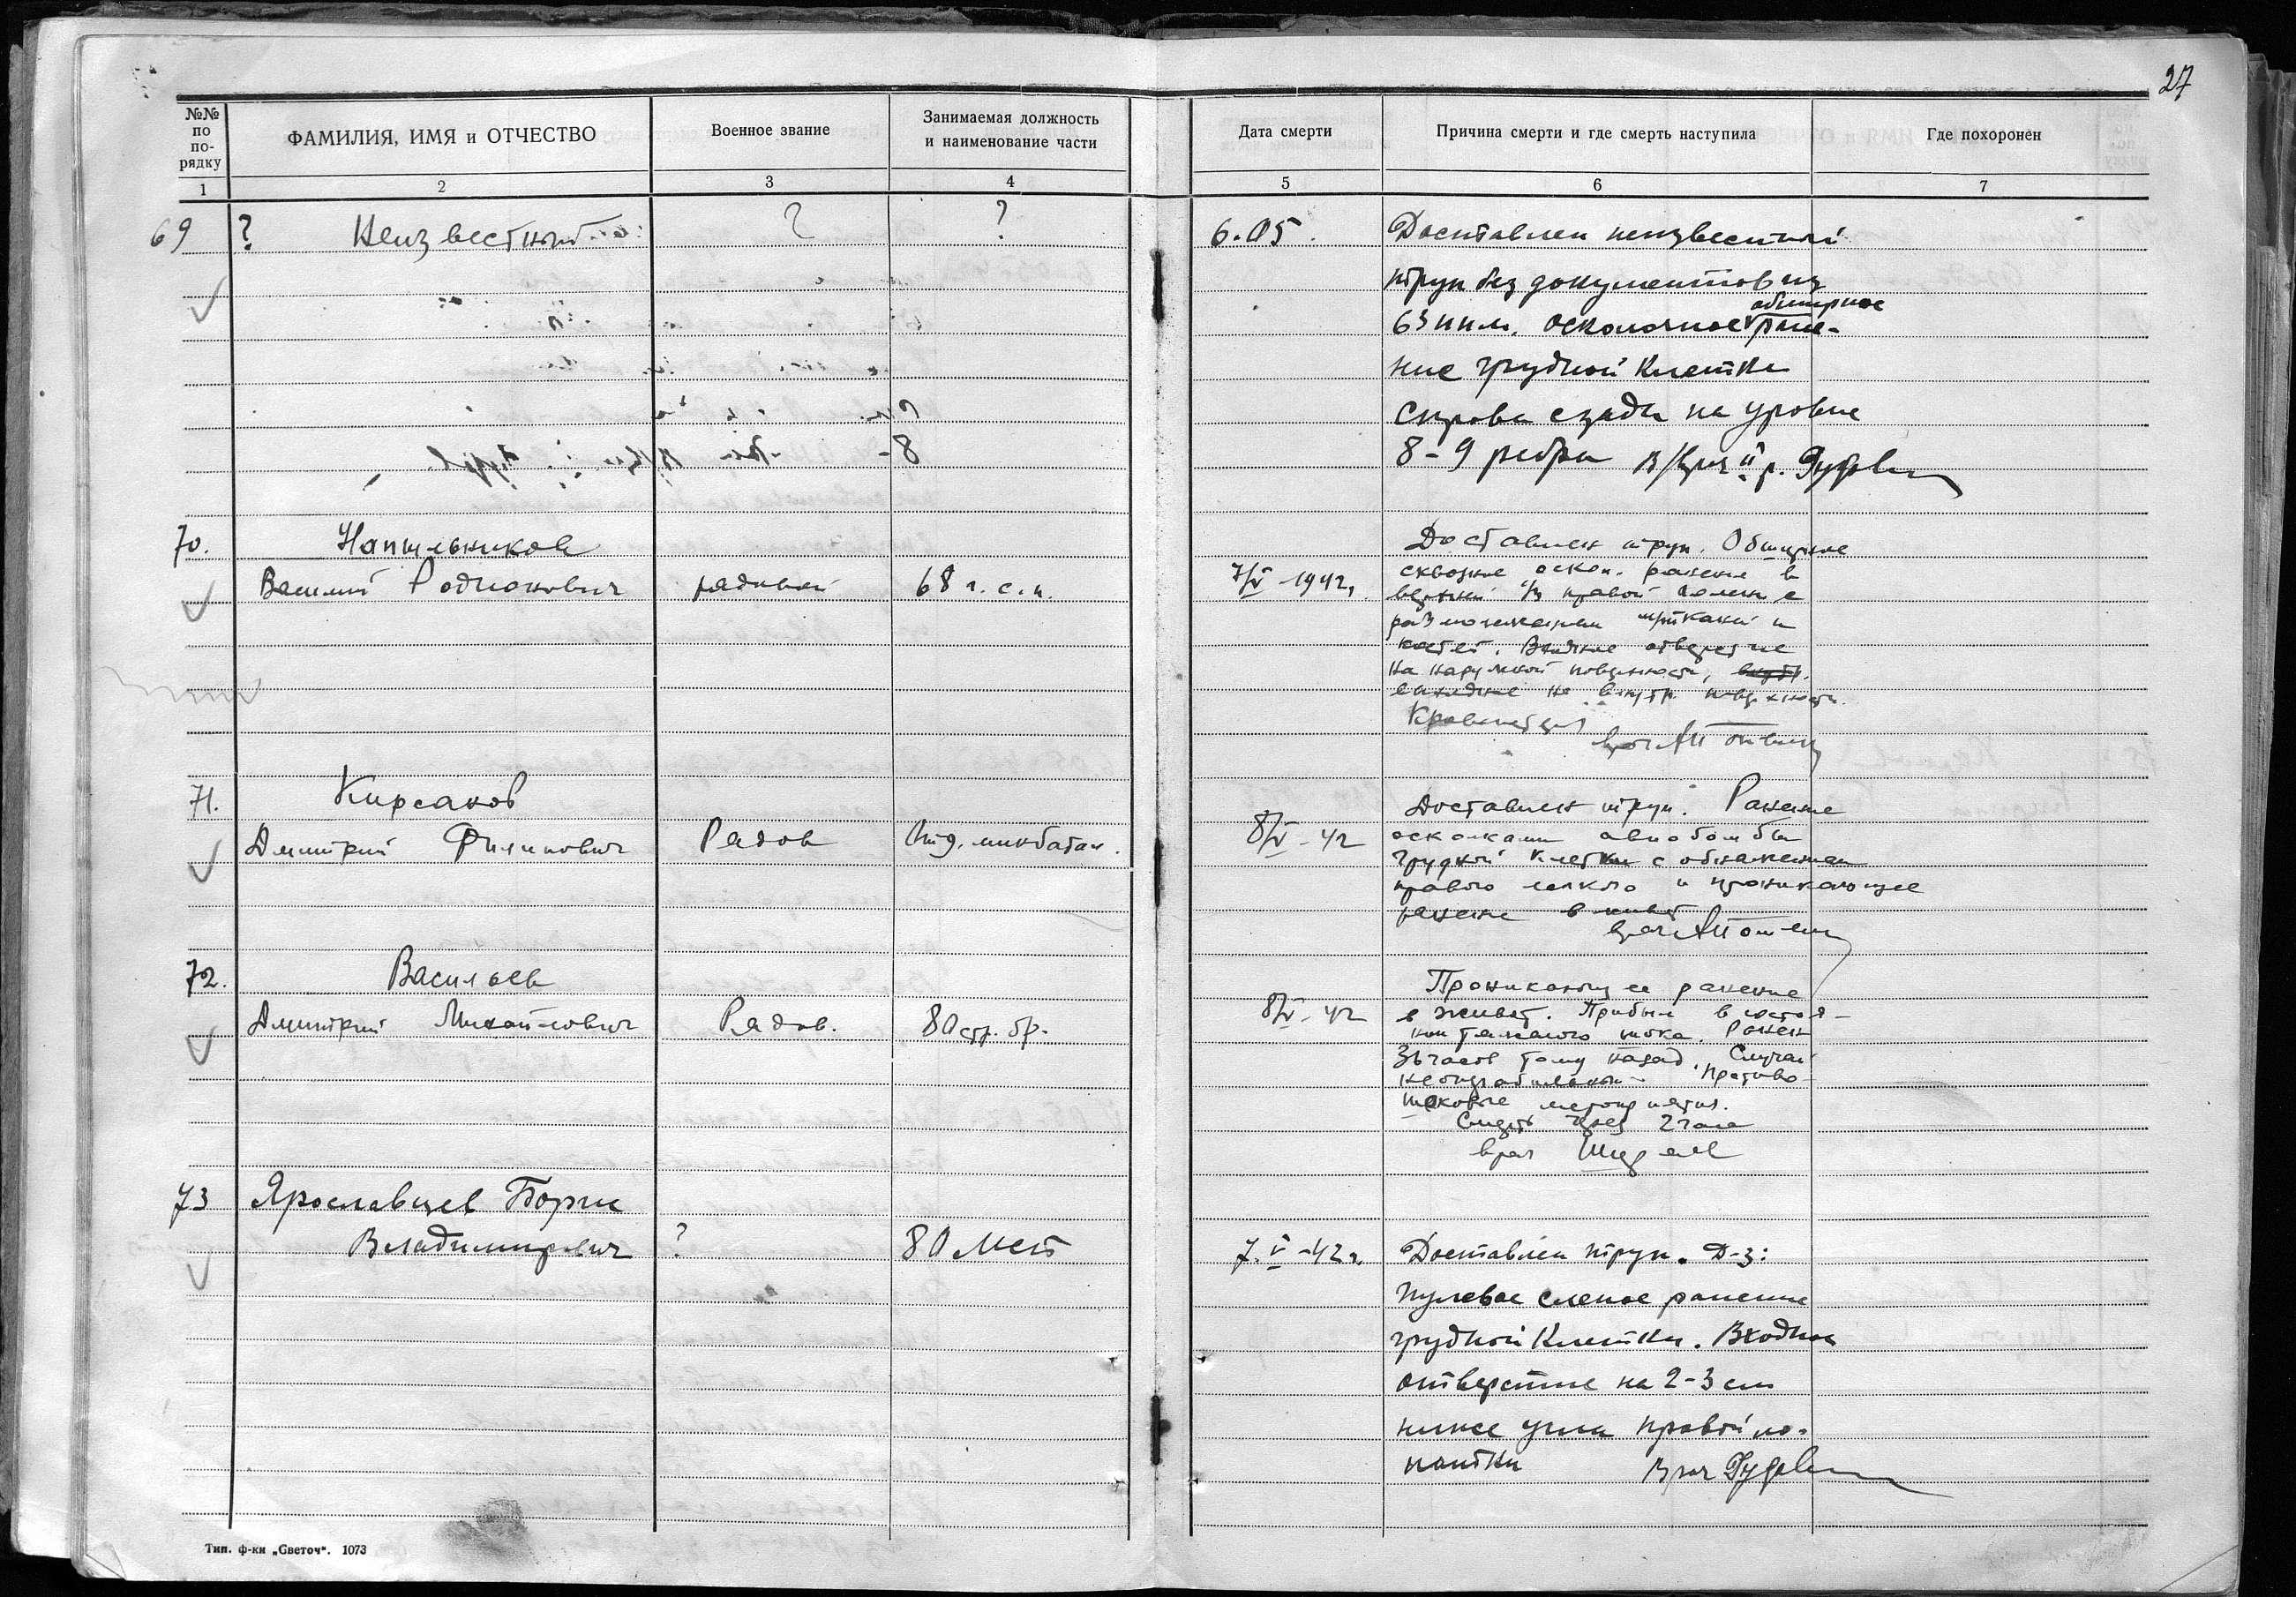 27
№№ по по-рядку
ФАМИЛИЯ, ИМЯ и ОТЧЕСТВО
Военное звание
Занимаемая должность и наименование части
Дата смерти
Причина смерти и где смерть наступила
Где похоронен
1 2 3 4 5 6 7
69 ? Неизвестный ? ? 6.05.
Доставлен неизвестный
труп без документов из
63 ппм. осколочное обширное ране-
ние грудной клетки
справа сзади на уровне
8-9 ребра в/врач II р.
70.
Напильников
Василий Родионович рядовой 68 г.с.п. 7/V-1942г.
Доставлен труп. Обширное
сквозное оскол. ранение в
верхней 1/3 правой голени с
размозжением тканей и
костей. Входное отверстие
на наружной поверхности,
выходное на внутр. поверхности.
Кровопотеря
врач
71.
Кирсанов
Дмитрий Филипович Рядов Отд. минбатал. 8/V-42
Доставлен труп. Ранение
осколками авиабомбы
грудной клетки с обнажением
правого легкого и проникающее
ранение в живот
врач
72.
Васильев
Дмитрий Михайлович Рядов. 80 стр. бр. 8/V-42
Проникающее ранение
в живот. Прибыл в состоя-
нии тяжелого шока. Ранен
часов тому назад. Случай
неоперабильный. Противо-
шоковые
Смерть через 2 часа
врач
73 Ярославцев Борис
Владимирович ? 80 МСБ 7.V-42г.
Доставлен труп. Д-з:
Пулевое слепое ранение
грудной клетки. Входное
отверстие на 2-3 см
ниже угла правой ло-
патки Врач
Тип. ф-ки „Светоч“. 1073